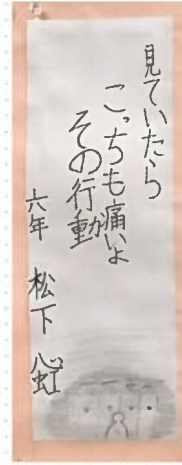 見ていたら
こっちも痛いよ
その行動
六年 松下 虹